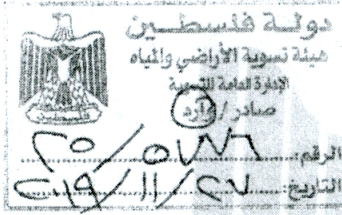 دولة فلسطين
هيئة تسوية الأراضي والمياه
الإدارة العامة للتسوية
صادر / وارد
الرقم:
التاريخ: ٢٠١٩/١١/٢٧